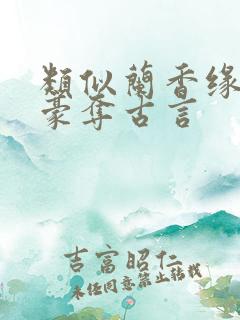 類似蘭香缘
豪夺古言
吉富昭仁
未任同意禁止転載